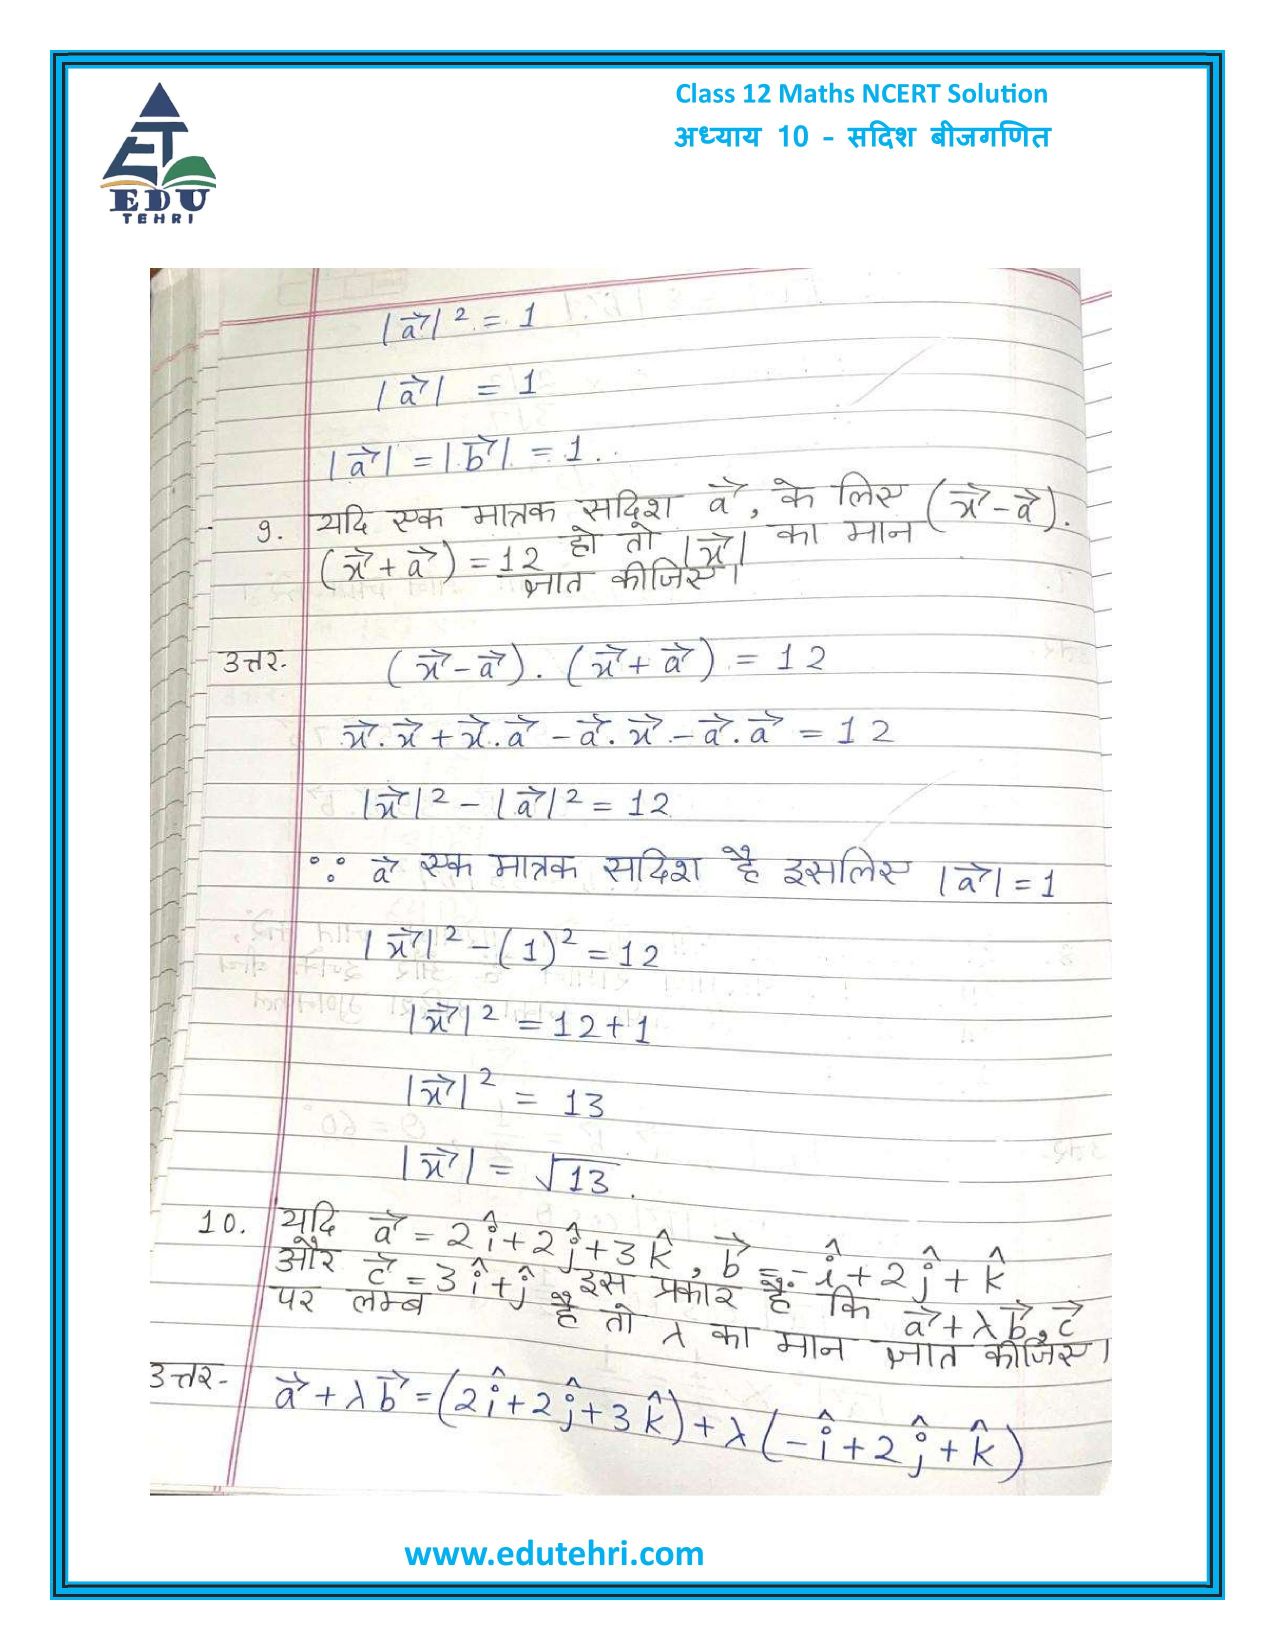 Class 12 Maths NCERT Solution
अध्याय 10 - सदिश बीजगणित
EDU
TEHRI
|a⃗|² = 1
|a⃗| = 1
|a⃗| = |b⃗| = 1.
9. यदि एक मात्रक सदिश a⃗, के लिए (x⃗ - a⃗).
(x⃗ + a⃗) = 12 हो तो |x⃗| का मान
ज्ञात कीजिए।
उत्तर. (x⃗ - a⃗) . (x⃗ + a⃗) = 12
x⃗.x⃗ + x⃗.a⃗ - a⃗.x⃗ - a⃗.a⃗ = 12
|x⃗|² - |a⃗|² = 12
∵ a⃗ एक मात्रक सदिश है इसलिए |a⃗| = 1
|x⃗|² - (1)² = 12
|x⃗|² = 12 + 1
|x⃗|² = 13
|x⃗| = √13.
10. यदि a⃗ = 2î + 2ĵ + 3k̂, b⃗ = -î + 2ĵ + k̂
और c⃗ = 3î + ĵ इस प्रकार है कि a⃗ + λb⃗, c⃗
पर लम्ब है तो λ का मान ज्ञात कीजिए।
उत्तर- a⃗ + λb⃗ = (2î + 2ĵ + 3k̂) + λ(-î + 2ĵ + k̂)
www.edutehri.com